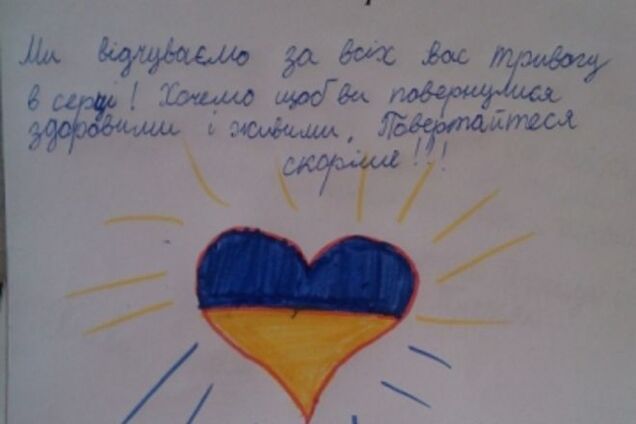 Ми відчуваємо за всіх вас тривогу
в серці! Хочемо щоб ви повернулися
здоровими і живими. Повертайтеся
скоріше!!!